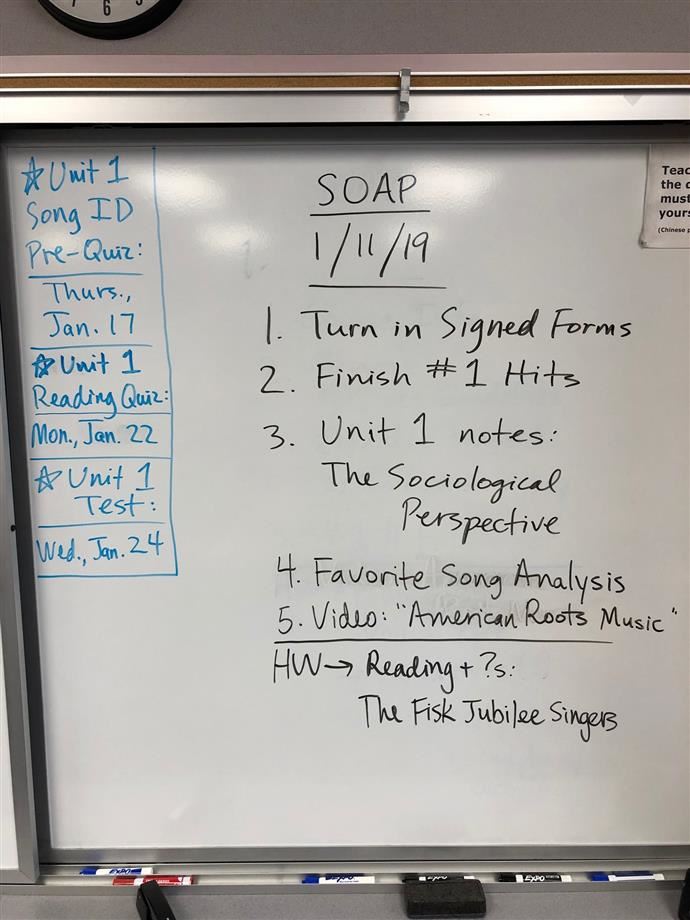 ☆ Unit 1
Song ID
Pre-Quiz:
Thurs.,
Jan. 17
☆ Unit 1
Reading Quiz:
Mon., Jan. 22
☆ Unit 1
Test:
Wed., Jan. 24
SOAP
1/11/19
1. Turn in Signed Forms
2. Finish #1 Hits
3. Unit 1 notes:
The Sociological
Perspective
4. Favorite Song Analysis
5. Video: "American Roots Music"
HW → Reading + ?s:
The Fisk Jubilee Singers
Teac
the d
must
yours
(Chinese p
7 6 5
EXPO
EXPO
EXPO
EXPO
EXPO